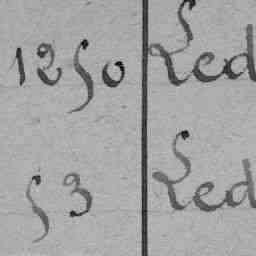 1250 Led
53 Led